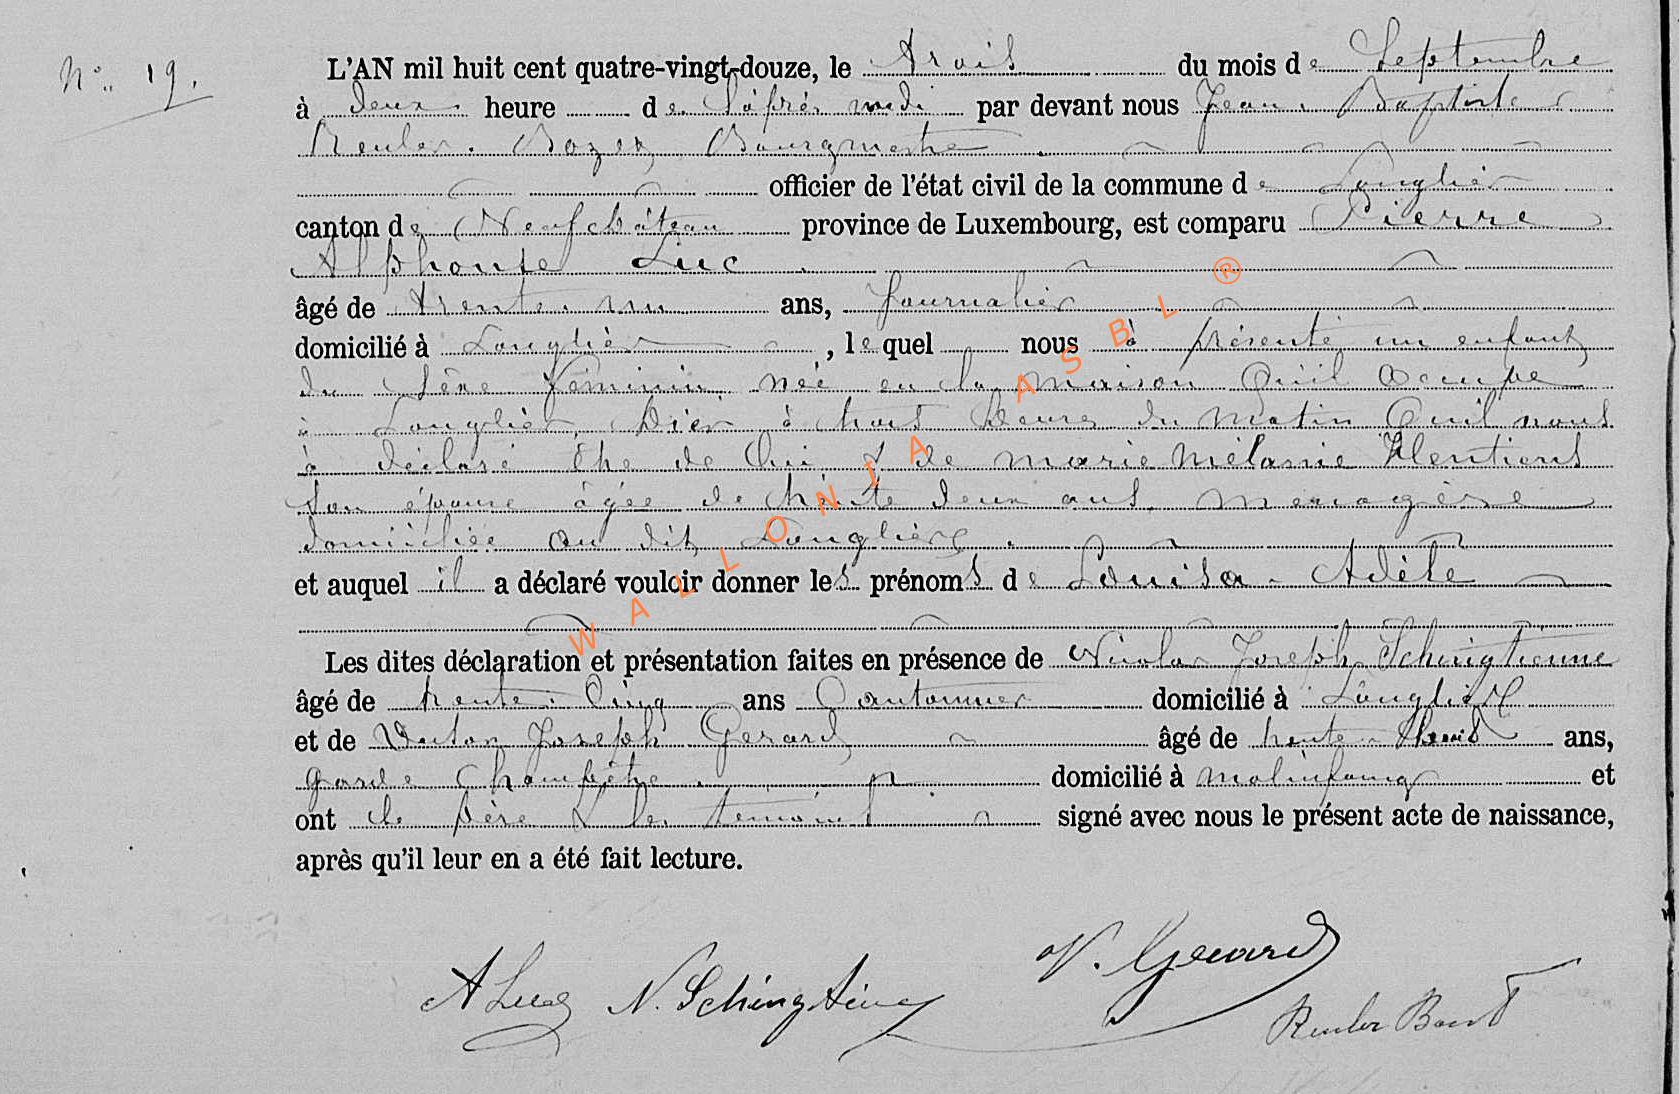 N° 19.
L'AN mil huit cent quatre-vingt-douze, le trois du mois de Septembre
à deux heure de l'après midi par devant nous Jean Baptiste
Reuler. Bozet Bourgmestre
officier de l'état civil de la commune de Longlier
canton de Neufchâteau province de Luxembourg, est comparu Pierre
Alphonse Luc
âgé de trente un ans, Journalier
domicilié à Longlier, lequel nous à présenté un enfant
du sexe féminin née en la maison Qu'il occupe
à Longlier, hier à huit heures du matin Qu'il nous
à déclaré être de lui & de marie Mélanie
son épouse âgée de trente deux ans menagère
domiciliée au dit Longlier
et auquel il a déclaré vouloir donner les prénoms de Louisa Adèle
Les dites déclaration et présentation faites en présence de Nicolas Joseph Schingtienne
âgé de trente Cinq ans Cantonnier domicilié à Longlier
et de Victor Joseph Gerard âgé de trente huit ans,
garde Champêtre domicilié à molinfaing et
ont le père & les témoins signé avec nous le présent acte de naissance,
après qu'il leur en a été fait lecture.
A Luc N. Schingtienne V. Gerard
Reuler Bozet
WALLONIA ASBL ®